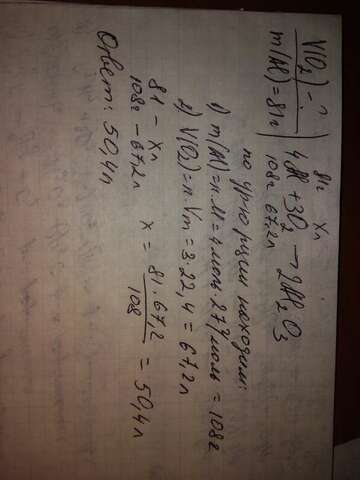 V(O₂) - ?
m(Al) = 81г
81г Xл
4Al + 3O₂ → 2Al₂O₃
108г 67,2л
по ур-ю р-ции находим:
1) m(Al) = n·M = 4моль·27г/моль = 108г
2) V(O₂) = n·Vm = 3·22,4 = 67,2л
81 - Xл
108г - 67,2л
x = 81·67,2 / 108 = 50,4л
Ответ: 50,4л